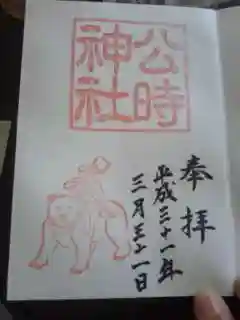 公時
神社
奉拝
平成三十一年
三月三十一日